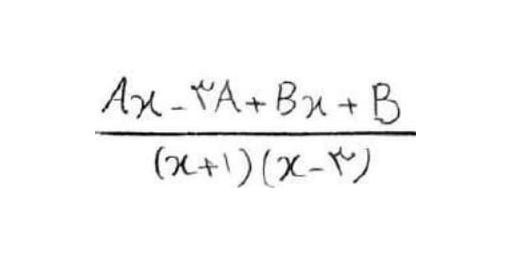 Ax - ۳A + Bx + B
(x+۱)(x-۳)